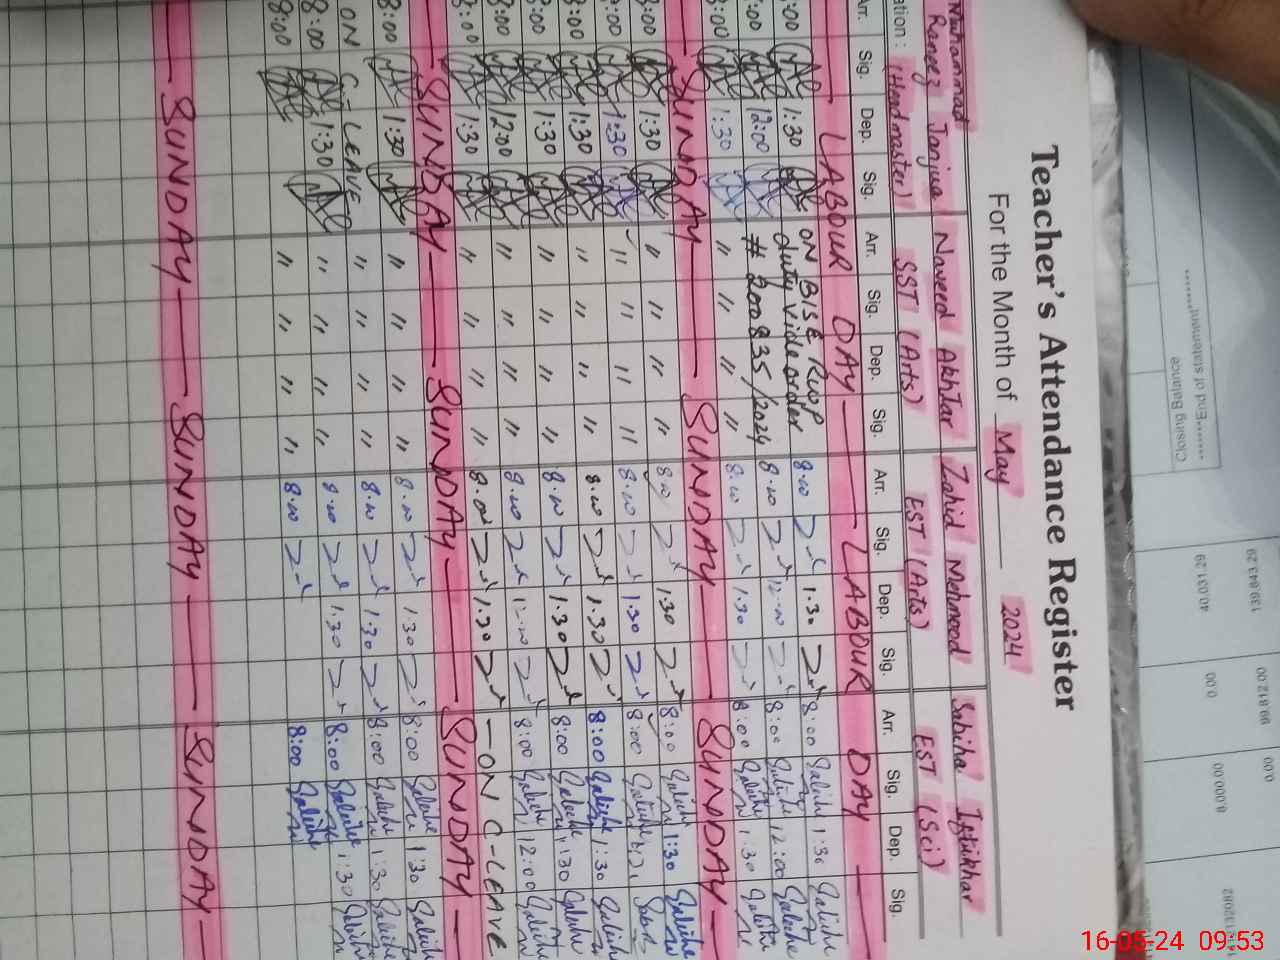 Teacher's Attendance Register
For the Month of May 2024
Muhammad Rameez Janjua Naveed Akhtar Zahid Mehmood Sabiha Iftikhar
ation: (Headmaster) SST (Arts) EST (Arts) EST (Sci)
Arr. Sig. Dep. Sig. Arr. Sig. Dep. Sig. Arr. Sig. Dep. Sig. Arr. Sig. Dep. Sig.
LABOUR DAY LABOUR DAY
:00 1:30 ON BISE RWP 8:00 1:30 8:00 1:30
:00 12:00 duty vide order 8:00 12:00 8:00 12:00
:00 1:30 # 200835/2024 8:00 1:30 8:00 1:30
SUNDAY SUNDAY SUNDAY
8:00 1:30 " " " " 8:00 1:30 8:00 1:30
:00 1:30 " " " " 8:00 1:30 8:00
8:00 1:30 " " " " 8:00 1:30 8:00 1:30
8:00 1:30 " " " " 8:00 1:30 8:00 1:30
8:00 12:00 " " " " 8:00 12:00 8:00 12:00
8:00 1:30 " " " " 8:00 1:30 ON C-LEAVE
SUNDAY SUNDAY SUNDAY
8:00 1:30 " " " " 8:00 1:30 8:00 1:30
ON C-LEAVE " " " " 8:00 1:30 8:00 1:30
8:00 1:30 " " " " 8:00 1:30 8:00 1:30
8:00 " " " " 8:00 8:00
SUNDAY SUNDAY SUNDAY
End of statement
Closing Balance
40,031.29
0.00
16-05-24 09:53